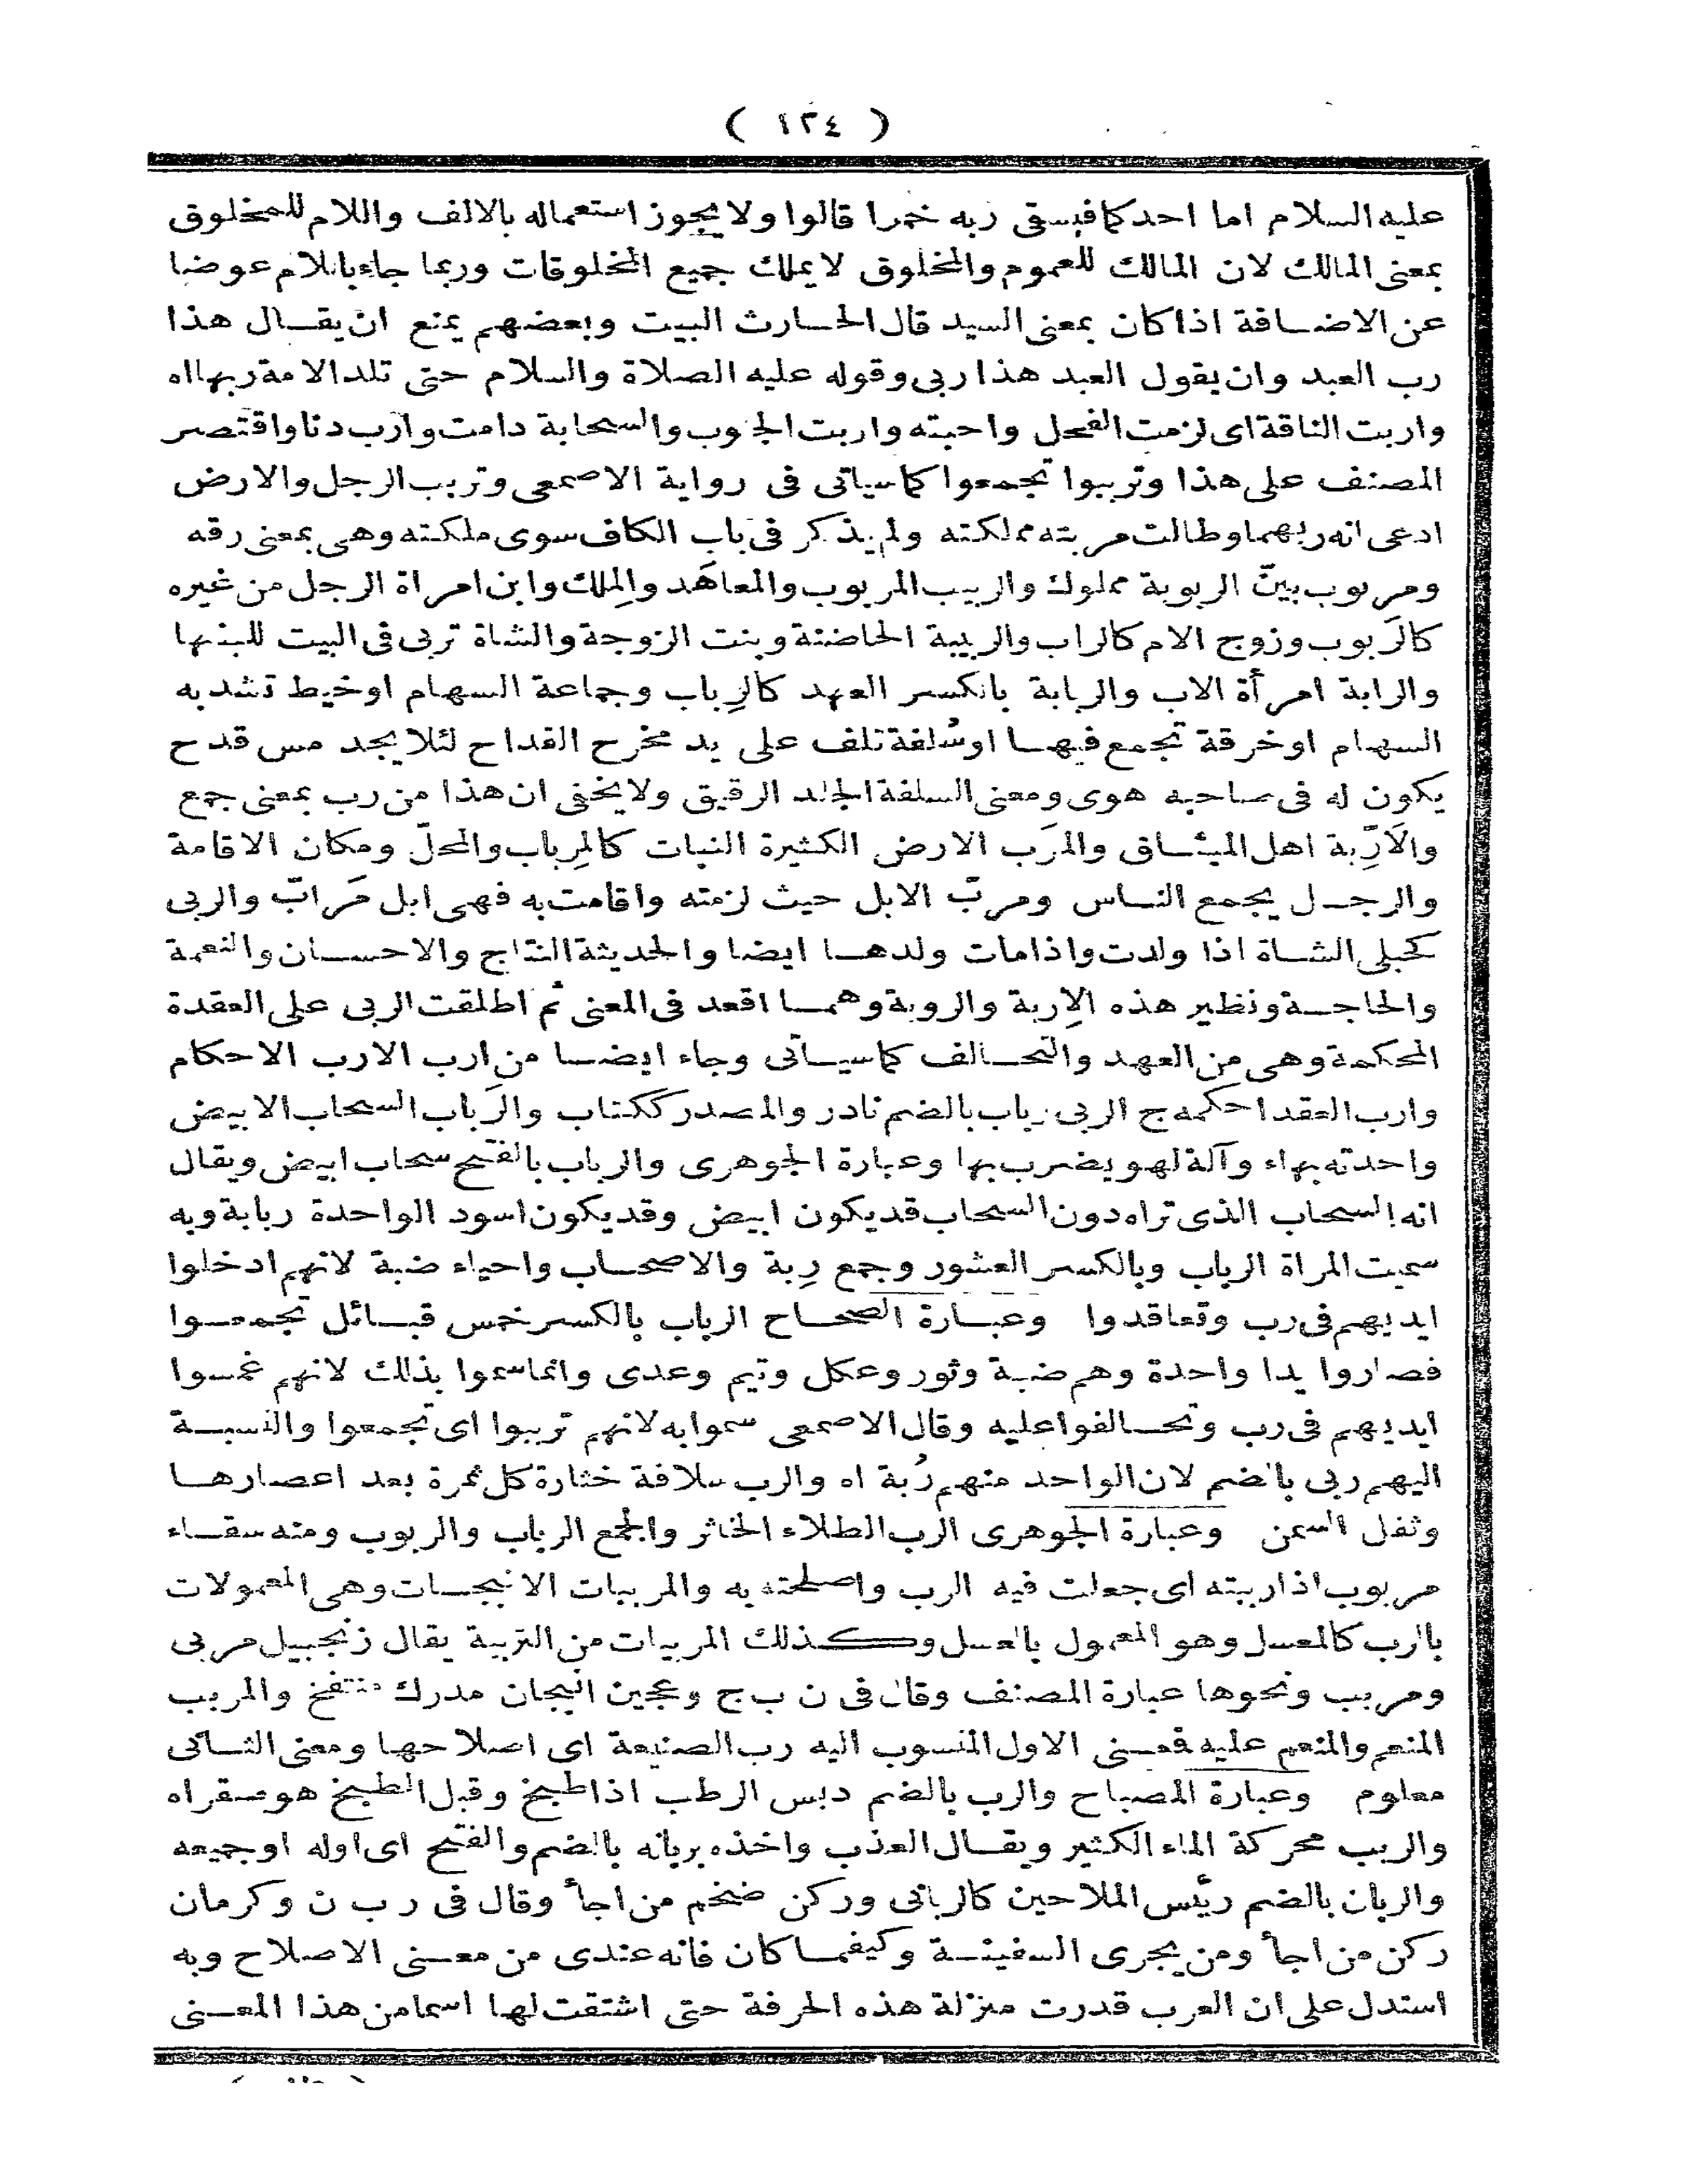 ( ١٣٤ )
عليه السلام اما احدكما فيسقى ربه خمرا قالوا ولا يجوز استعماله بالالف واللام للمخلوق
بمعنى المالك لان المالك للعموم والمخلوق لا يملك جميع المخلوقات وربما جاء باللام عوضا
عن الاضافة اذا كان بمعنى السيد قال الحارث البيت وبعضهم يمنع ان يقال هذا
رب العبد وان يقول العبد هذا ربى وقوله عليه الصلاة والسلام حتى تلد الامة ربها اه
واربت الناقة اى لزمت الفحل واحبته واربت الجنوب والسحابة دامت وارب دنا واقتصر
المصنف على هذا وتربوا تجمعوا كما سياتى فى رواية الاصمعى وتربب الرجل والارض
ادعى انه ربهما وطالت مربته مملكته ولم يذكر فى باب الكاف سوى ملكته وهى بمعنى رقه
ومربوب بينّ الربوبة مملوك والربيب المربوب والمعاهَد والمِلك وابن امراة الرجل من غيره
كالرَبوب وزوج الام كالراب والربيبة الحاضنة وبنت الزوجة والشاة تربى فى البيت للبنها
والرابة امرأة الاب والربابة بالكسر العهد كالرِباب وجماعة السهام او خيط تشد به
السهام او خرقة تجمع فيها او سُلفة تلف على يد مخرج القداح لئلا يجد مس قدح
يكون له فى صاحبه هوى ومعنى السلفة الجلد الرقيق ولا يخفى ان هذا من رب بمعنى جمع
والاَرِبّة اهل الميثاق والمرَب الارض الكثيرة النبات كالمِرباب والمحلّ ومكان الاقامة
والرجل يجمع الناس ومربّ الابل حيث لزمته واقامت به فهى ابل مَرابّ والربى
كحبلى الشاة اذا ولدت واذا مات ولدها ايضا والحديثة النتاج والاحسان والنعمة
والحاجة ونظير هذه الاِربة والروبة وهما اقعد فى المعنى ثم اطلقت الربى على العقدة
المحكمة وهى من العهد والتحالف كما سياتى وجاء ايضا من ارب الارب الاحكام
وارب العقد احكمه ج الربى رباب بالضم نادر والمصدر ككتاب والرَباب السحاب الابيض
واحدته بهاء وآلة لهو يضرب بها وعبارة الجوهرى والرباب بالفتح سحاب ابيض ويقال
انه السحاب الذى تراه دون السحاب قد يكون ابيض وقد يكون اسود الواحدة ربابة وبه
سميت المراة الرباب وبالكسر العشور وجمع رِبة والاصحاب واحياء ضبة لانهم ادخلوا
ايديهم فى رب وتعاقدوا وعبارة الصحاح الرباب بالكسر خمس قبائل تجمعوا
فصاروا يدا واحدة وهم ضبة وثور وعكل وتيم وعدى وانما سموا بذلك لانهم غمسوا
ايديهم فى رب وتحالفوا عليه وقال الاصمعى سموا به لانهم ترببوا اى تجمعوا والنسبة
اليهم ربى بالضم لان الواحد منهم رُبة اه والرب سلافة خثارة كل ثمرة بعد اعصارها
وثفل السمن وعبارة الجوهرى الرب الطلاء الخاثر والجمع الرباب والربوب ومنه سقاء
مربوب اذا ربيته اى جعلت فيه الرب واصلحته به والمربيات الانبجات وهى المعمولات
بالرب كالمعسل وهو المعمول بالعسل وكذلك المربيات من التربية يقال زنجبيل مربى
ومربب ونحوها عبارة المصنف وقال فى ن ب ج وعجين انبجان مدرك منتفخ والمربب
المنعم والمنعم عليه فمعنى الاول المنسوب اليه رب الصنيعة اى اصلاحها ومعنى الثانى
معلوم وعبارة المصباح والرب بالضم دبس الرطب اذا طبخ وقبل الطبخ هو صقر اه
والربب محركة الماء الكثير ويقال العذب واخذه بربانه بالضم والفتح اى اوله او جميعه
والربان بالضم رئيس الملاحين كالربانى وركن ضخم من اجأ وقال فى ر ب ن وكرمان
ركن من اجأ ومن يجرى السفينة وكيفما كان فانه عندى من معنى الاصلاح وبه
استدل على ان العرب قدرت منزلة هذه الحرفة حتى اشتقت لها اسما من هذا المعنى